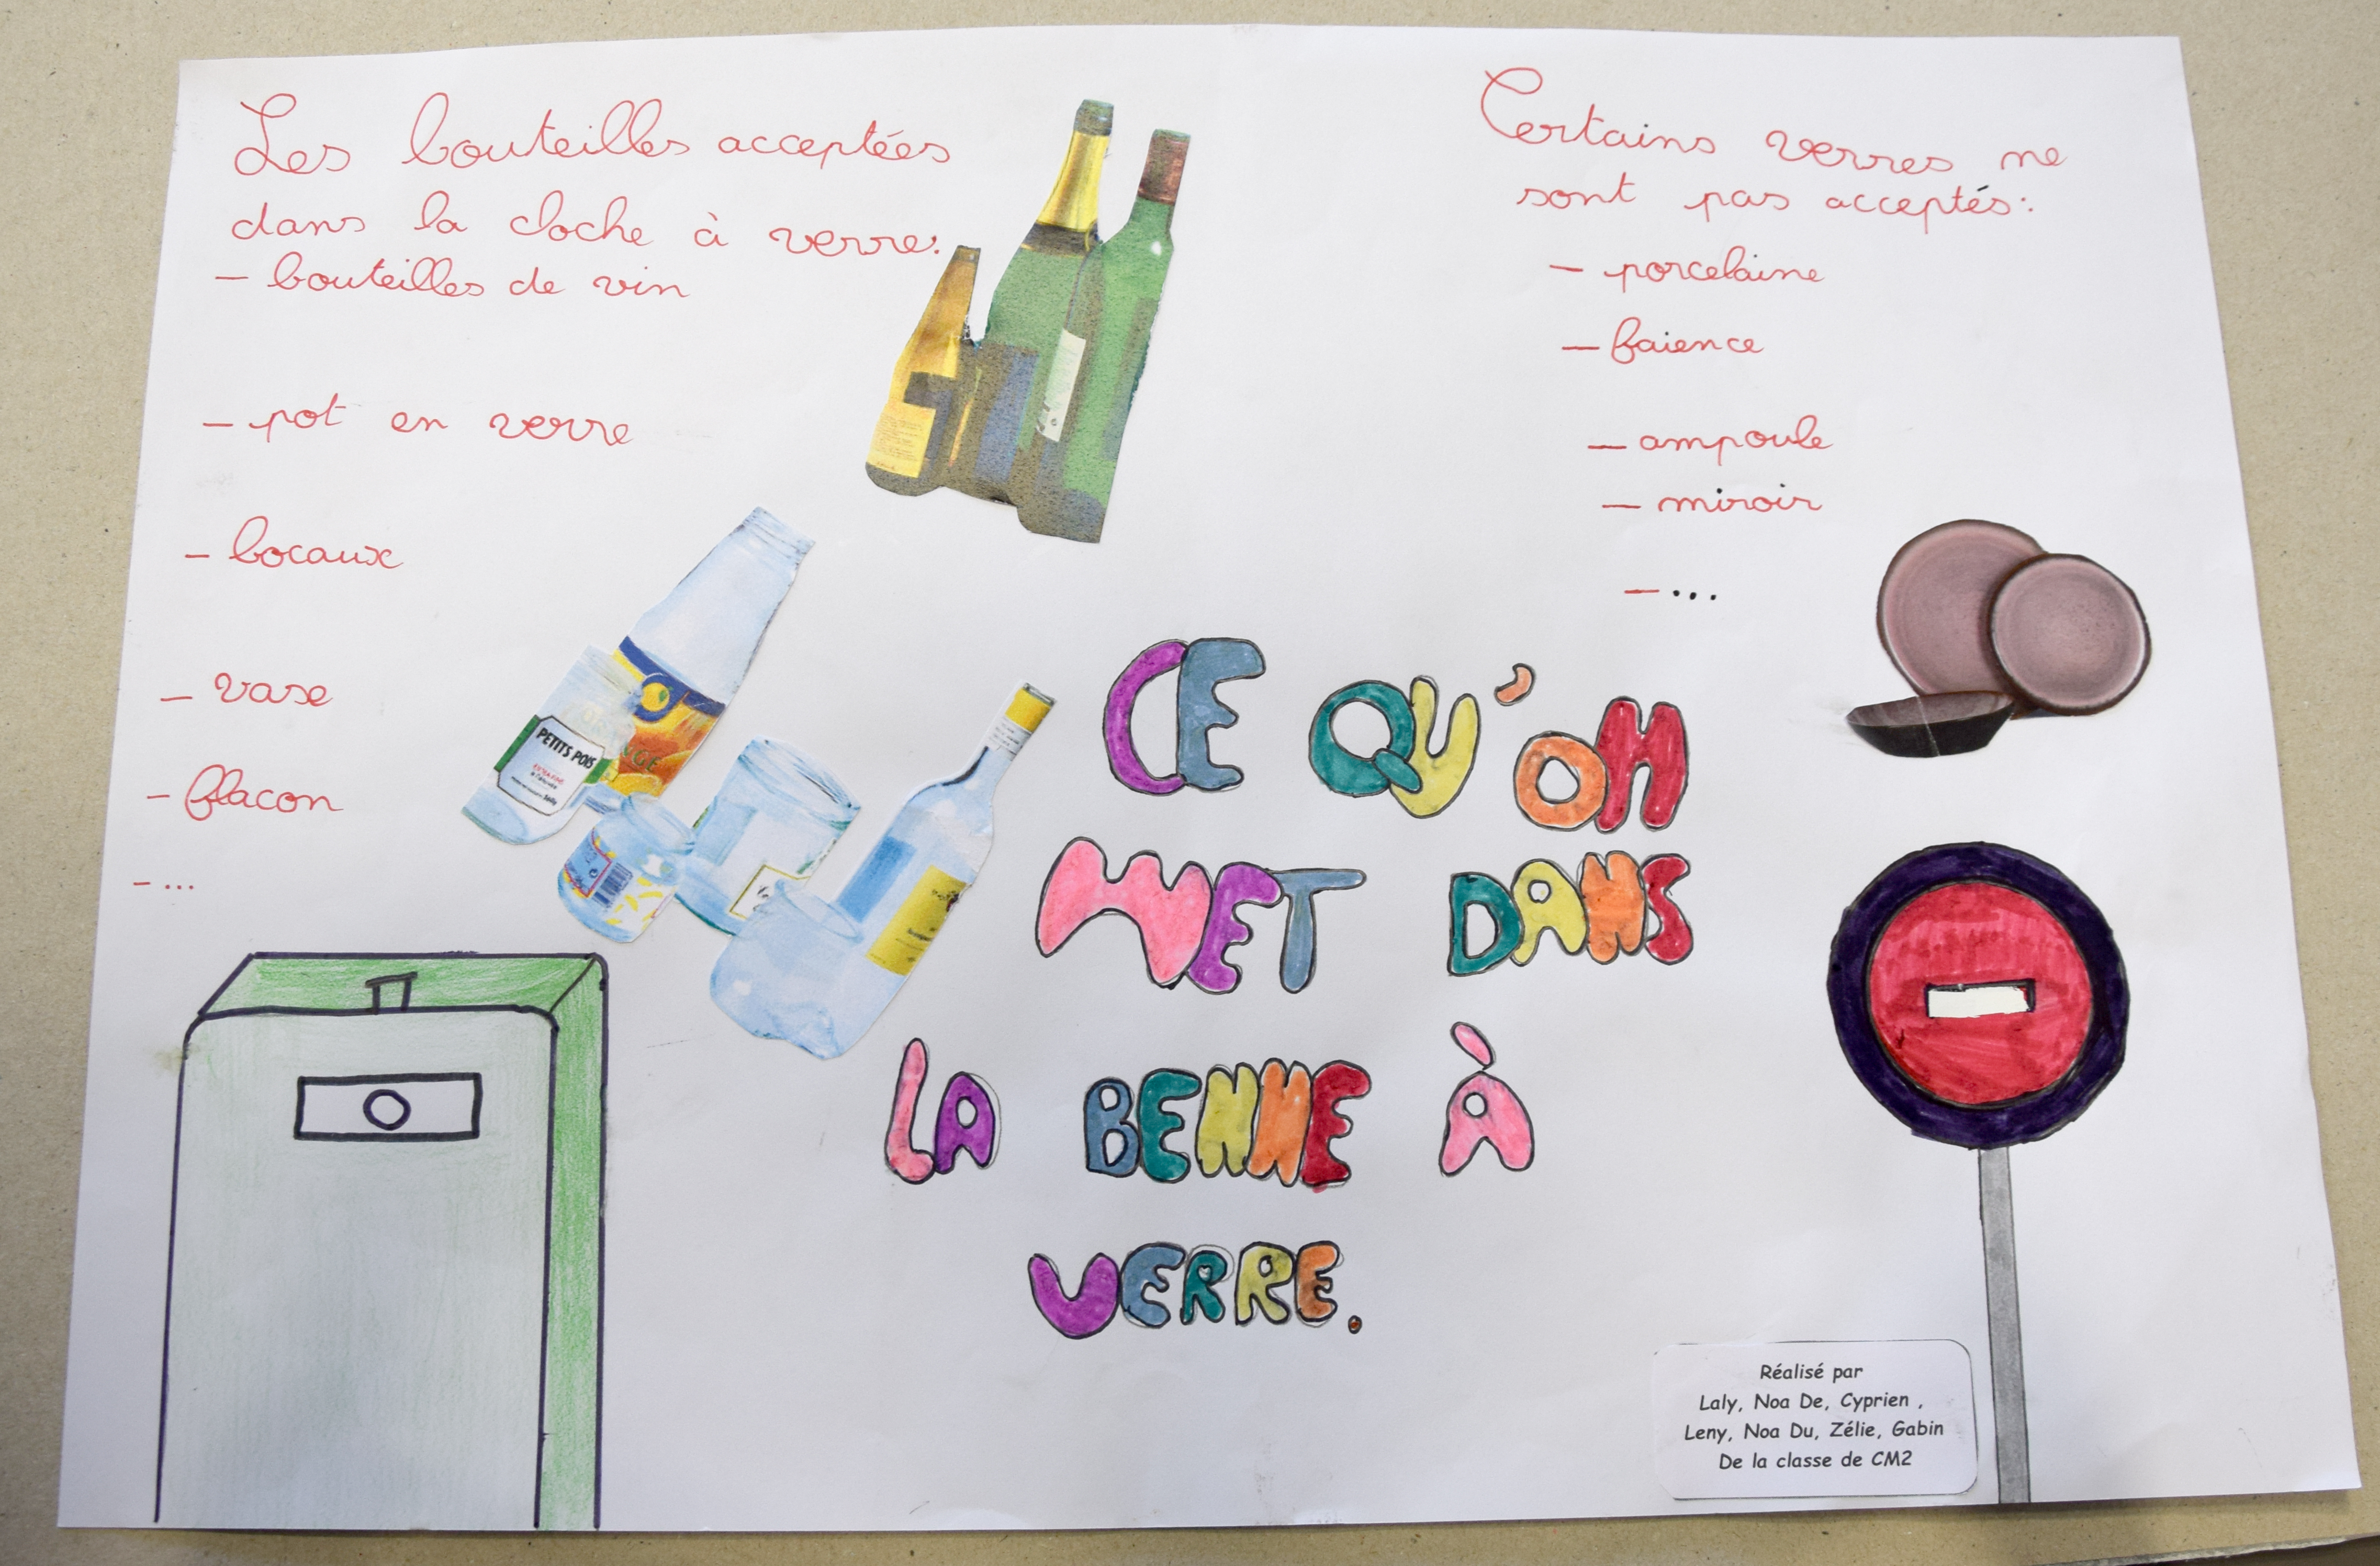 Les bouteilles acceptées
dans la cloche à verre:
– bouteilles de vin
– pot en verre
– bocaux
– vase
– flacon
– ...
Certains verres ne
sont pas acceptés:
– porcelaine
– faience
– ampoule
– miroir
– ...
PETITS POIS
CE QU'ON
MET DANS
LA BENNE À
VERRE.
Réalisé par
Laly, Noa De, Cyprien ,
Leny, Noa Du, Zélie, Gabin
De la classe de CM2